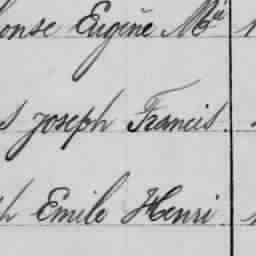 onse Eugène Mª
s Joseph Francis.
h Emile Henri.